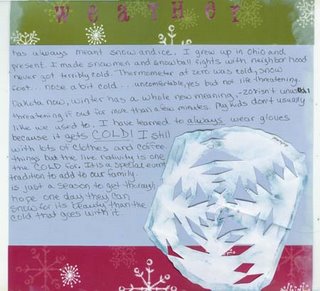 weather
has always meant snow and ice. I grew up in Ohio and
present. I made snowmen and snowball fights with neighborhood
never got terribly cold. Thermometer at zero was cold, snow
feet... nose a bit cold... uncomfortable, yes but not life threatening.
Dakota now, winter has a whole new meaning. -20 isn't
threatening if out for more than a few minutes. My kids don't usually
like we used to. I have learned to always wear gloves
because it gets COLD! I still
with lots of clothes and coffee.
things but the live nativity is one
the COLD for. It's a special
tradition to add to our family.
is just a season to get through.
hope one day they can
snow for its beauty than the
cold that goes with it.